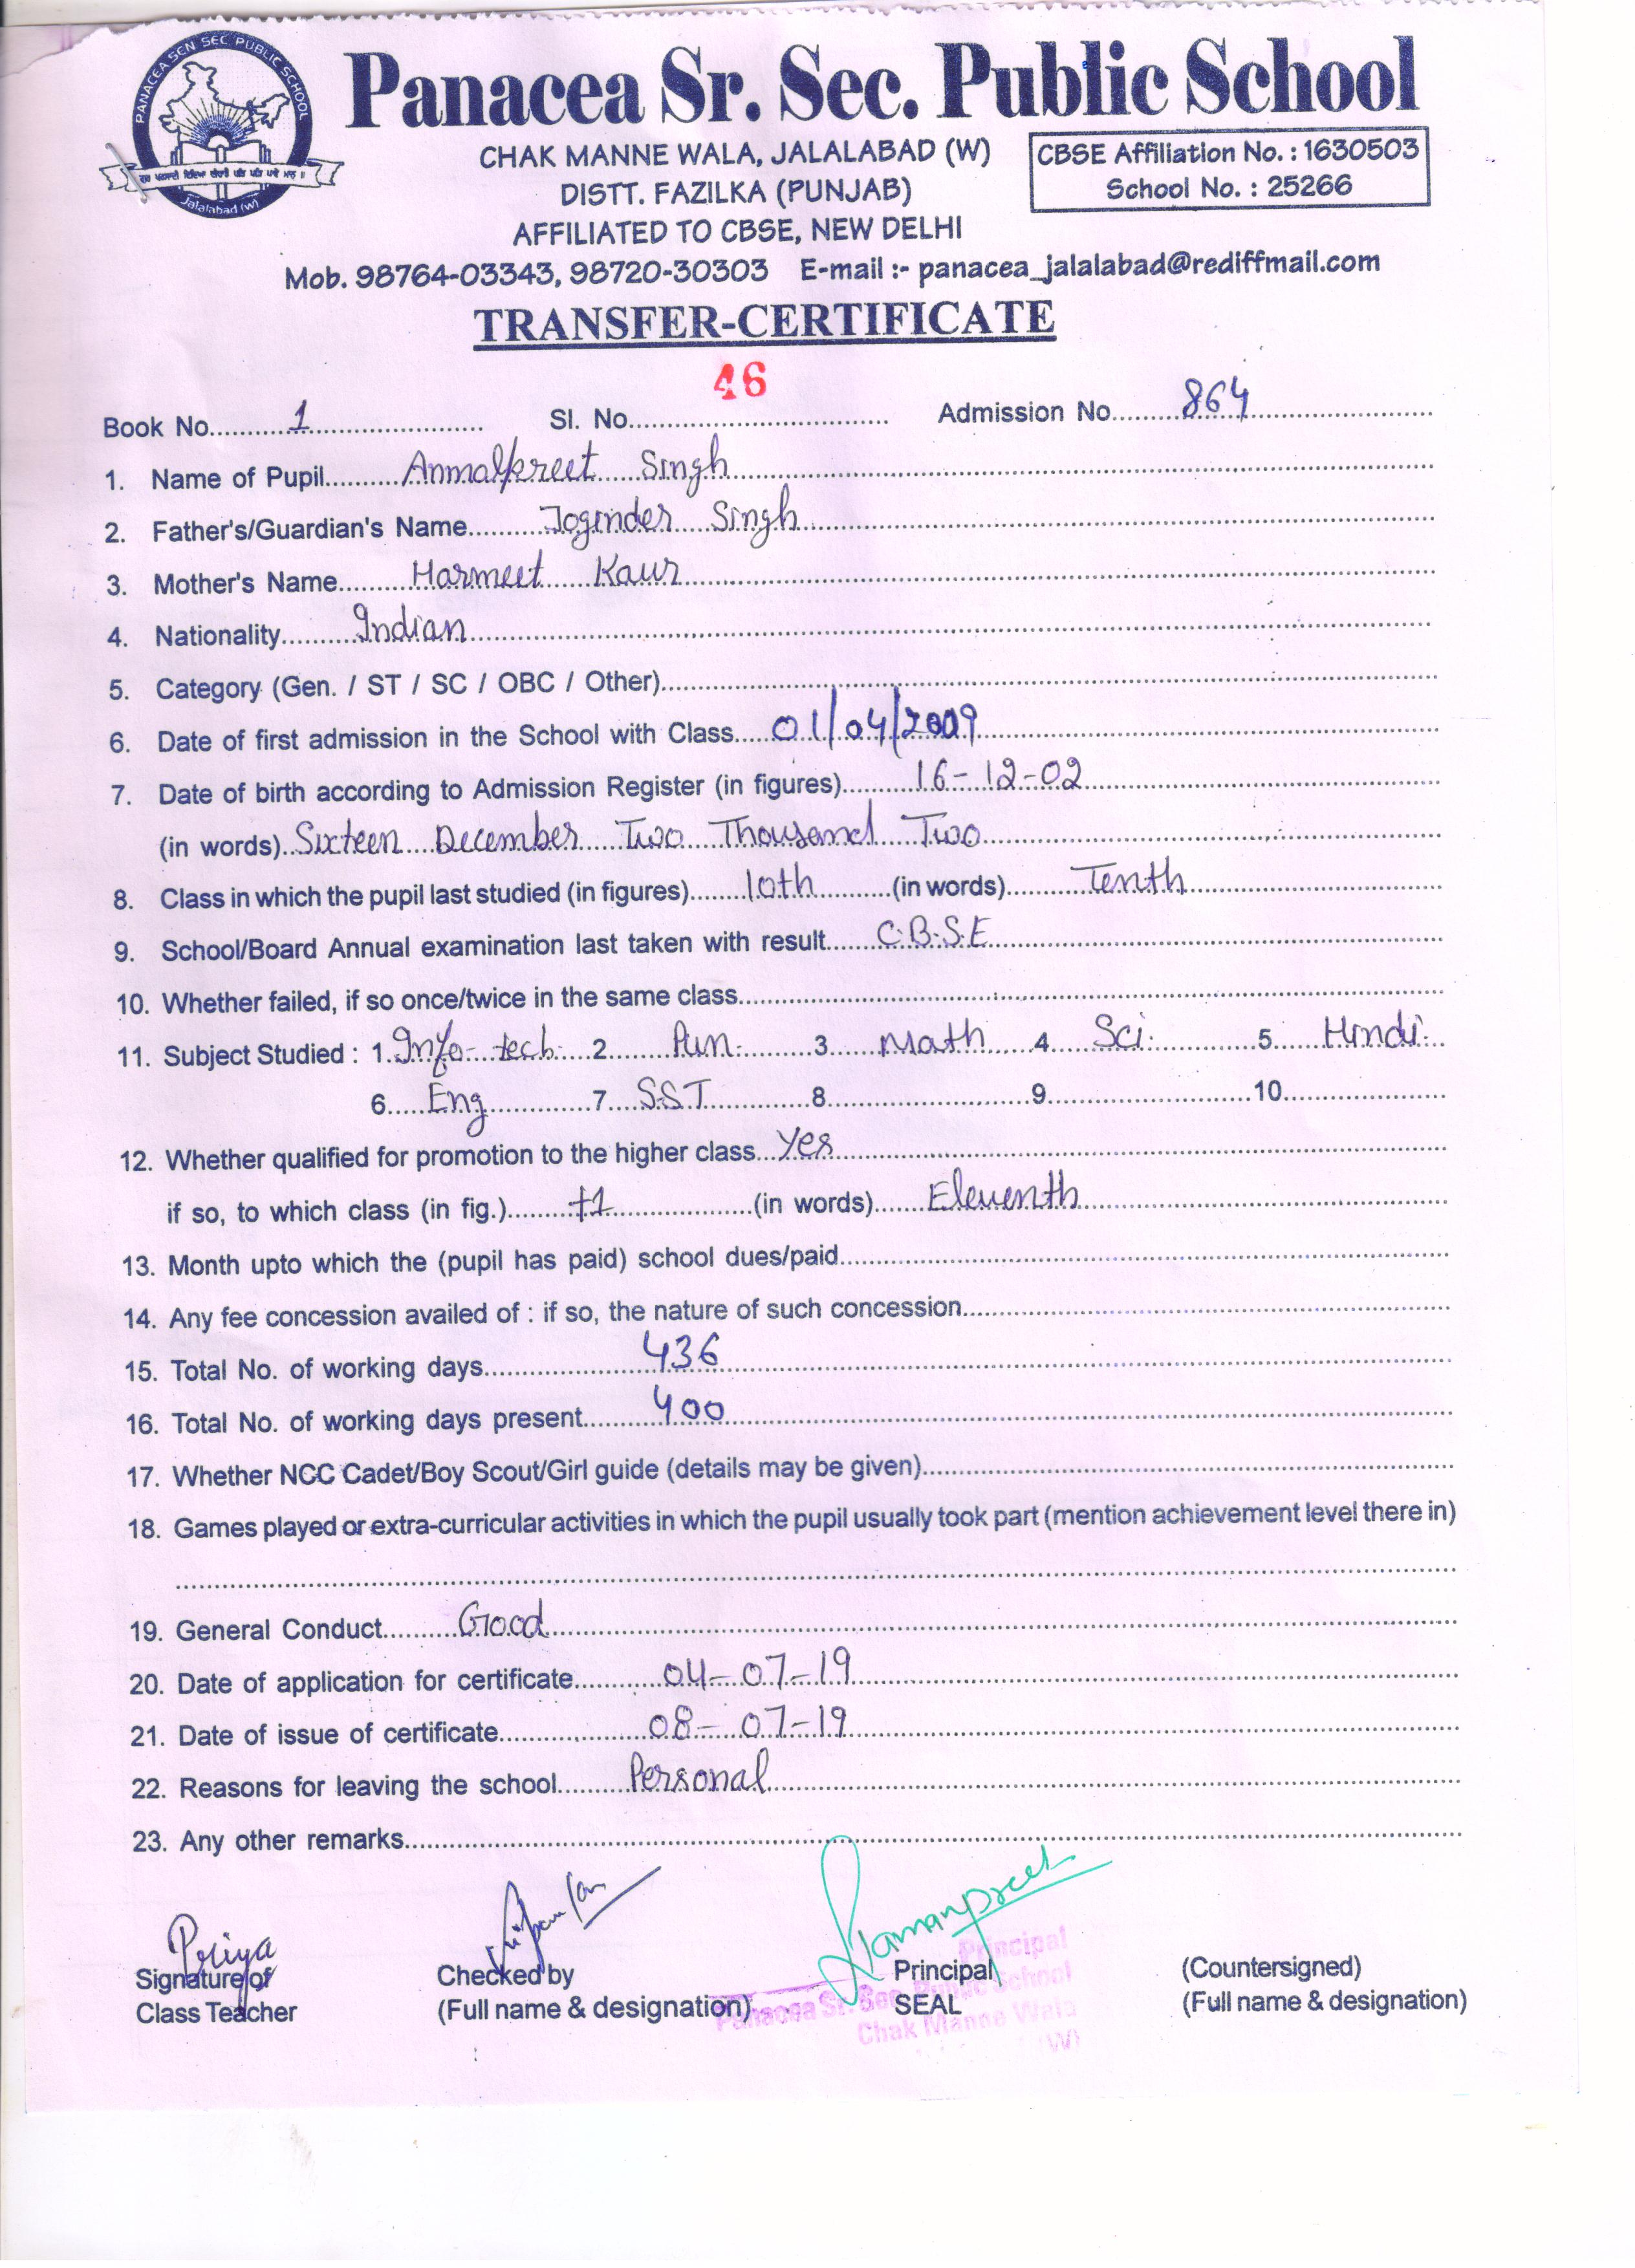 PANACEA SCN SEC PUBLIC SCHOOL
Jalalabad (W)
Panacea Sr. Sec. Public School
CHAK MANNE WALA, JALALABAD (W)
DISTT. FAZILKA (PUNJAB)
AFFILIATED TO CBSE, NEW DELHI
CBSE Affiliation No. : 1630503
School No. : 25266
Mob. 98764-03343, 98720-30303 E-mail :- panacea_jalalabad@rediffmail.com
TRANSFER-CERTIFICATE
Book No. 1 Sl. No. 46 Admission No. 864
1. Name of Pupil Anmolpreet Singh
2. Father's/Guardian's Name Joginder Singh
3. Mother's Name Harmeet Kaur
4. Nationality Indian
5. Category (Gen. / ST / SC / OBC / Other)
6. Date of first admission in the School with Class 01/04/2009
7. Date of birth according to Admission Register (in figures) 16-12-02
(in words) Sixteen December Two Thousand Two
8. Class in which the pupil last studied (in figures) 10th (in words) Tenth
9. School/Board Annual examination last taken with result C.B.S.E
10. Whether failed, if so once/twice in the same class
11. Subject Studied : 1. Info-tech. 2 Pun. 3 Math 4 Sci. 5 Hindi.
6 Eng 7 S.S.T 8 9 10
12. Whether qualified for promotion to the higher class Yes
if so, to which class (in fig.) +1 (in words) Eleventh
13. Month upto which the (pupil has paid) school dues/paid
14. Any fee concession availed of : if so, the nature of such concession
15. Total No. of working days 436
16. Total No. of working days present 400
17. Whether NCC Cadet/Boy Scout/Girl guide (details may be given)
18. Games played or extra-curricular activities in which the pupil usually took part (mention achievement level there in)
19. General Conduct Good
20. Date of application for certificate 04-07-19
21. Date of issue of certificate 08-07-19
22. Reasons for leaving the school Personal
23. Any other remarks
Priya
Signature of
Class Teacher
Checked by
(Full name & designation)
Principal
SEAL
Principal
Panacea Sr. Sec. Public School
Chak Manne Wala
(W)
(Countersigned)
(Full name & designation)